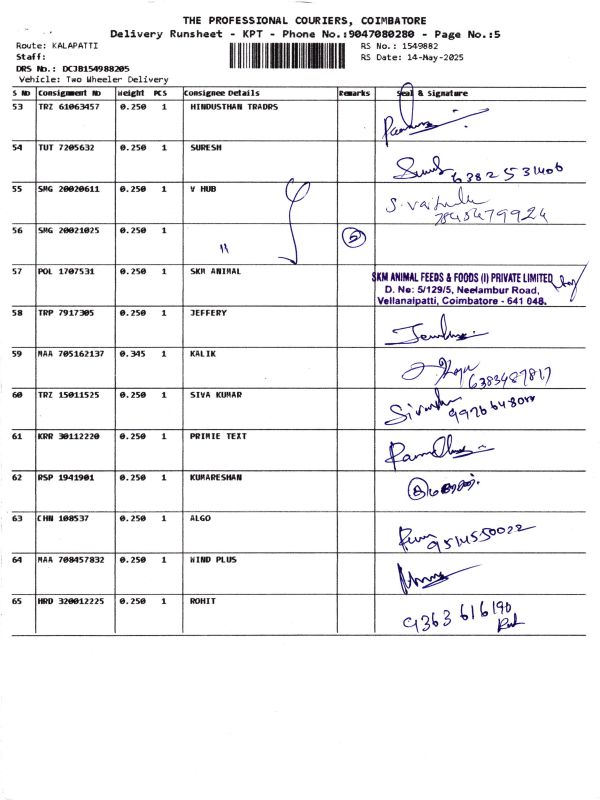 THE PROFESSIONAL COURIERS, COIMBATORE
Delivery Runsheet - KPT - Phone No.:9047080280 - Page No.:5
Route: KALAPATTI RS No.: 1549882
Staff: RS Date: 14-May-2025
DRS No.: DCJB154988205
Vehicle: Two Wheeler Delivery
S No Consignment No Weight PCS Consignee Details Remarks Seal & Signature
53 TRZ 61063457 0.250 1 HINDUSTHAN TRADRS
54 TUT 7205632 0.250 1 SURESH
55 SMG 20020611 0.250 1 V HUB
56 SMG 20021025 0.250 1 " 5
57 POL 1707531 0.250 1 SKM ANIMAL SKM ANIMAL FEEDS & FOODS (I) PRIVATE LIMITED
D. No: 5/129/5, Neelambur Road,
Vellanaipatti, Coimbatore - 641 048.
58 TRP 7917305 0.250 1 JEFFERY
59 MAA 705162137 0.345 1 KALIK 6383487817
60 TRZ 15011525 0.250 1 SIVA KUMAR
61 KRR 30112220 0.250 1 PRIMIE TEXT
62 RSP 1941901 0.250 1 KUMARESHAN
63 CHN 108537 0.250 1 ALGO 9514550022
64 MAA 708457832 0.250 1 WIND PLUS
65 HRD 320012225 0.250 1 ROHIT 9363616190